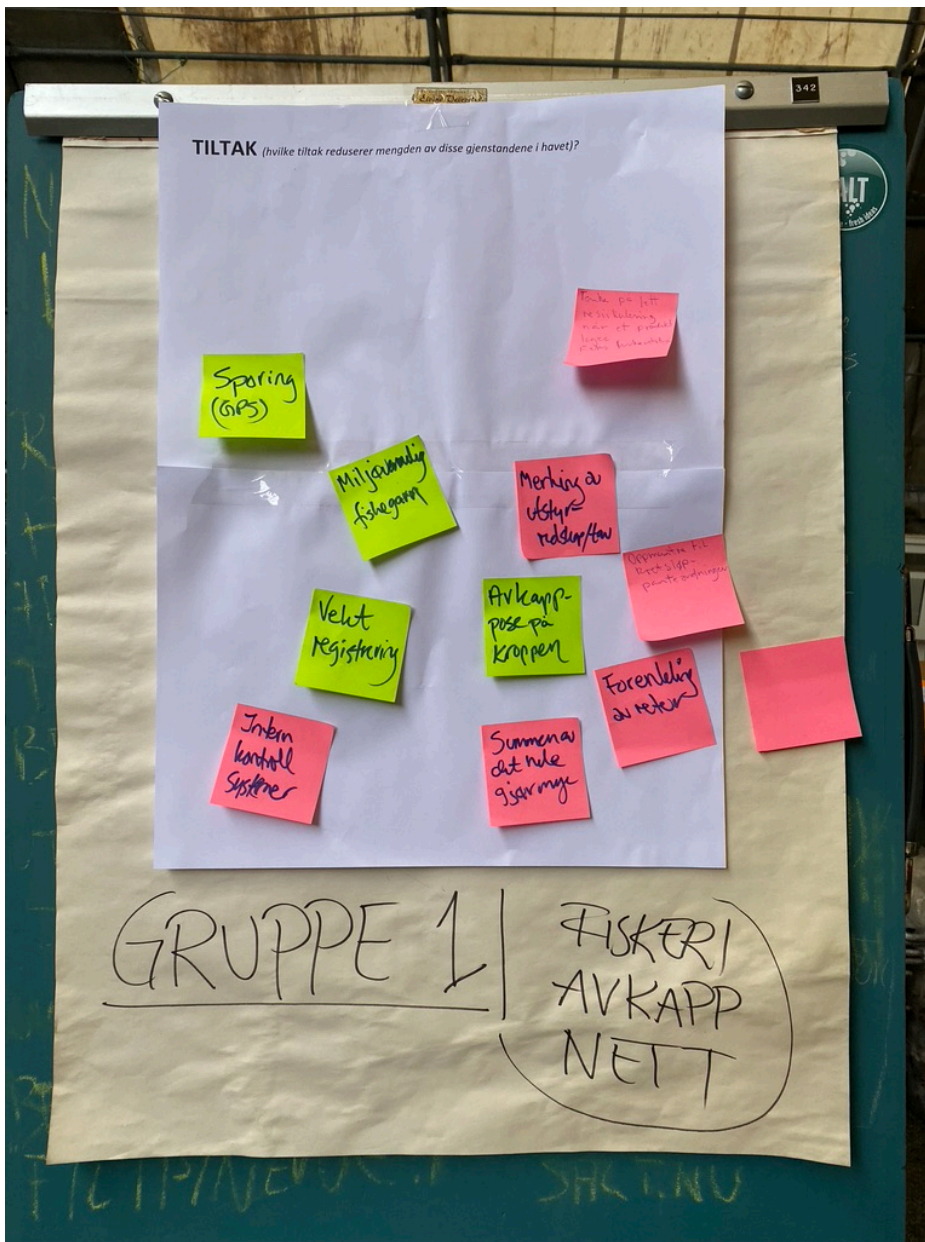 342
TILTAK (hvilke tiltak reduserer mengden av disse gjenstandene i havet)?
ALT
fresh ideas
Tenke på lett
resirkulering
når et produkt
lages
Sporing
(GPS)
Miljøvennlig
fiskegarn
Merking av
utstyr-
redskap/tau
Oppmuntre til
Vekt
registrering
Avkapp-
pose på
kroppen
Forenkling
av retur
Intern
kontroll
systemer
Summen av
det hele
gjør mye
GRUPPE 1
FISKERI
AVKAPP
NETT
SALT.NU